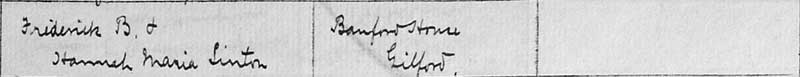 Frederick B. &
Hannah Maria Sinton
Banford House
Gilford.